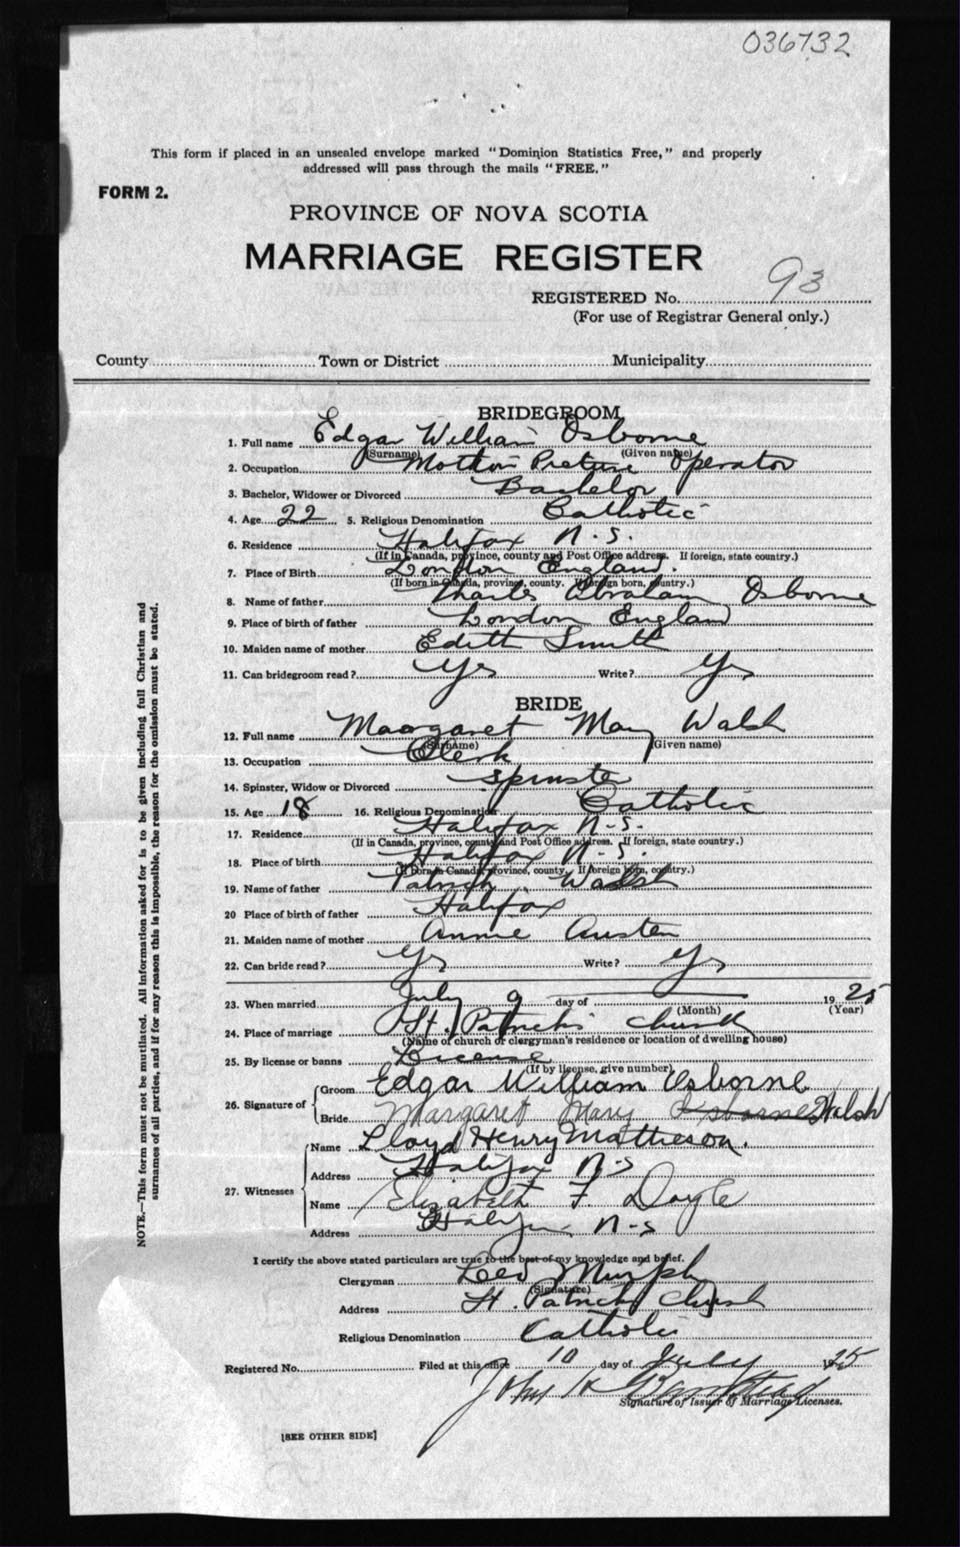 036732
This form if placed in an unsealed envelope marked "Dominion Statistics Free," and properly
addressed will pass through the mails "FREE."
FORM 2.
PROVINCE OF NOVA SCOTIA
MARRIAGE REGISTER
REGISTERED No. 93
(For use of Registrar General only.)
County Town or District Municipality
BRIDEGROOM
1. Full name Edgar William Osborne
(Surname) (Given name)
2. Occupation Motion Picture Operator
3. Bachelor, Widower or Divorced Bachelor
4. Age 22 5. Religious Denomination Catholic
6. Residence Halifax N.S.
(If in Canada, province, county and Post Office address. If foreign, state country.)
7. Place of Birth London England.
(If born in Canada, province, county. If foreign born, country.)
8. Name of father Charles Abraham Osborne
9. Place of birth of father London England
10. Maiden name of mother Edith Smith
11. Can bridegroom read? Yes Write? Yes
BRIDE
12. Full name Margaret Mary Walsh
(Surname) (Given name)
13. Occupation Clerk
14. Spinster, Widow or Divorced Spinster
15. Age 18 16. Religious Denomination Catholic
17. Residence Halifax N.S.
(If in Canada, province, county and Post Office address. If foreign, state country.)
18. Place of birth Halifax N.S.
(If born in Canada, province, county. If foreign born, country.)
19. Name of father Patrick Walsh
20 Place of birth of father Halifax
21. Maiden name of mother Annie Austen
22. Can bride read? Yes Write? Yes
23. When married July 9 day of 1925
(Month) (Year)
24. Place of marriage St. Patrick's Church
(Name of church or clergyman's residence or location of dwelling house)
25. By license or banns License
(If by license, give number)
26. Signature of
Groom Edgar William Osborne
Bride Margaret Mary Osborne Walsh
27. Witnesses
Name Lloyd Henry Mattheson.
Address Halifax N S
Name Elizabeth F. Doyle
Address Halifax N-S
I certify the above stated particulars are true to the best of my knowledge and belief.
Clergyman Leo Murphy
(Signature)
Address St. Patricks Church
Religious Denomination Catholic
Registered No. Filed at this office 10 day of July 1925
John
Signature of Issuer of Marriage Licenses.
[SEE OTHER SIDE]
NOTE.—This form must not be mutilated. All information asked for is to be given including full Christian and
surnames of all parties, and if for any reason this is impossible, the reason for the omission must be stated.